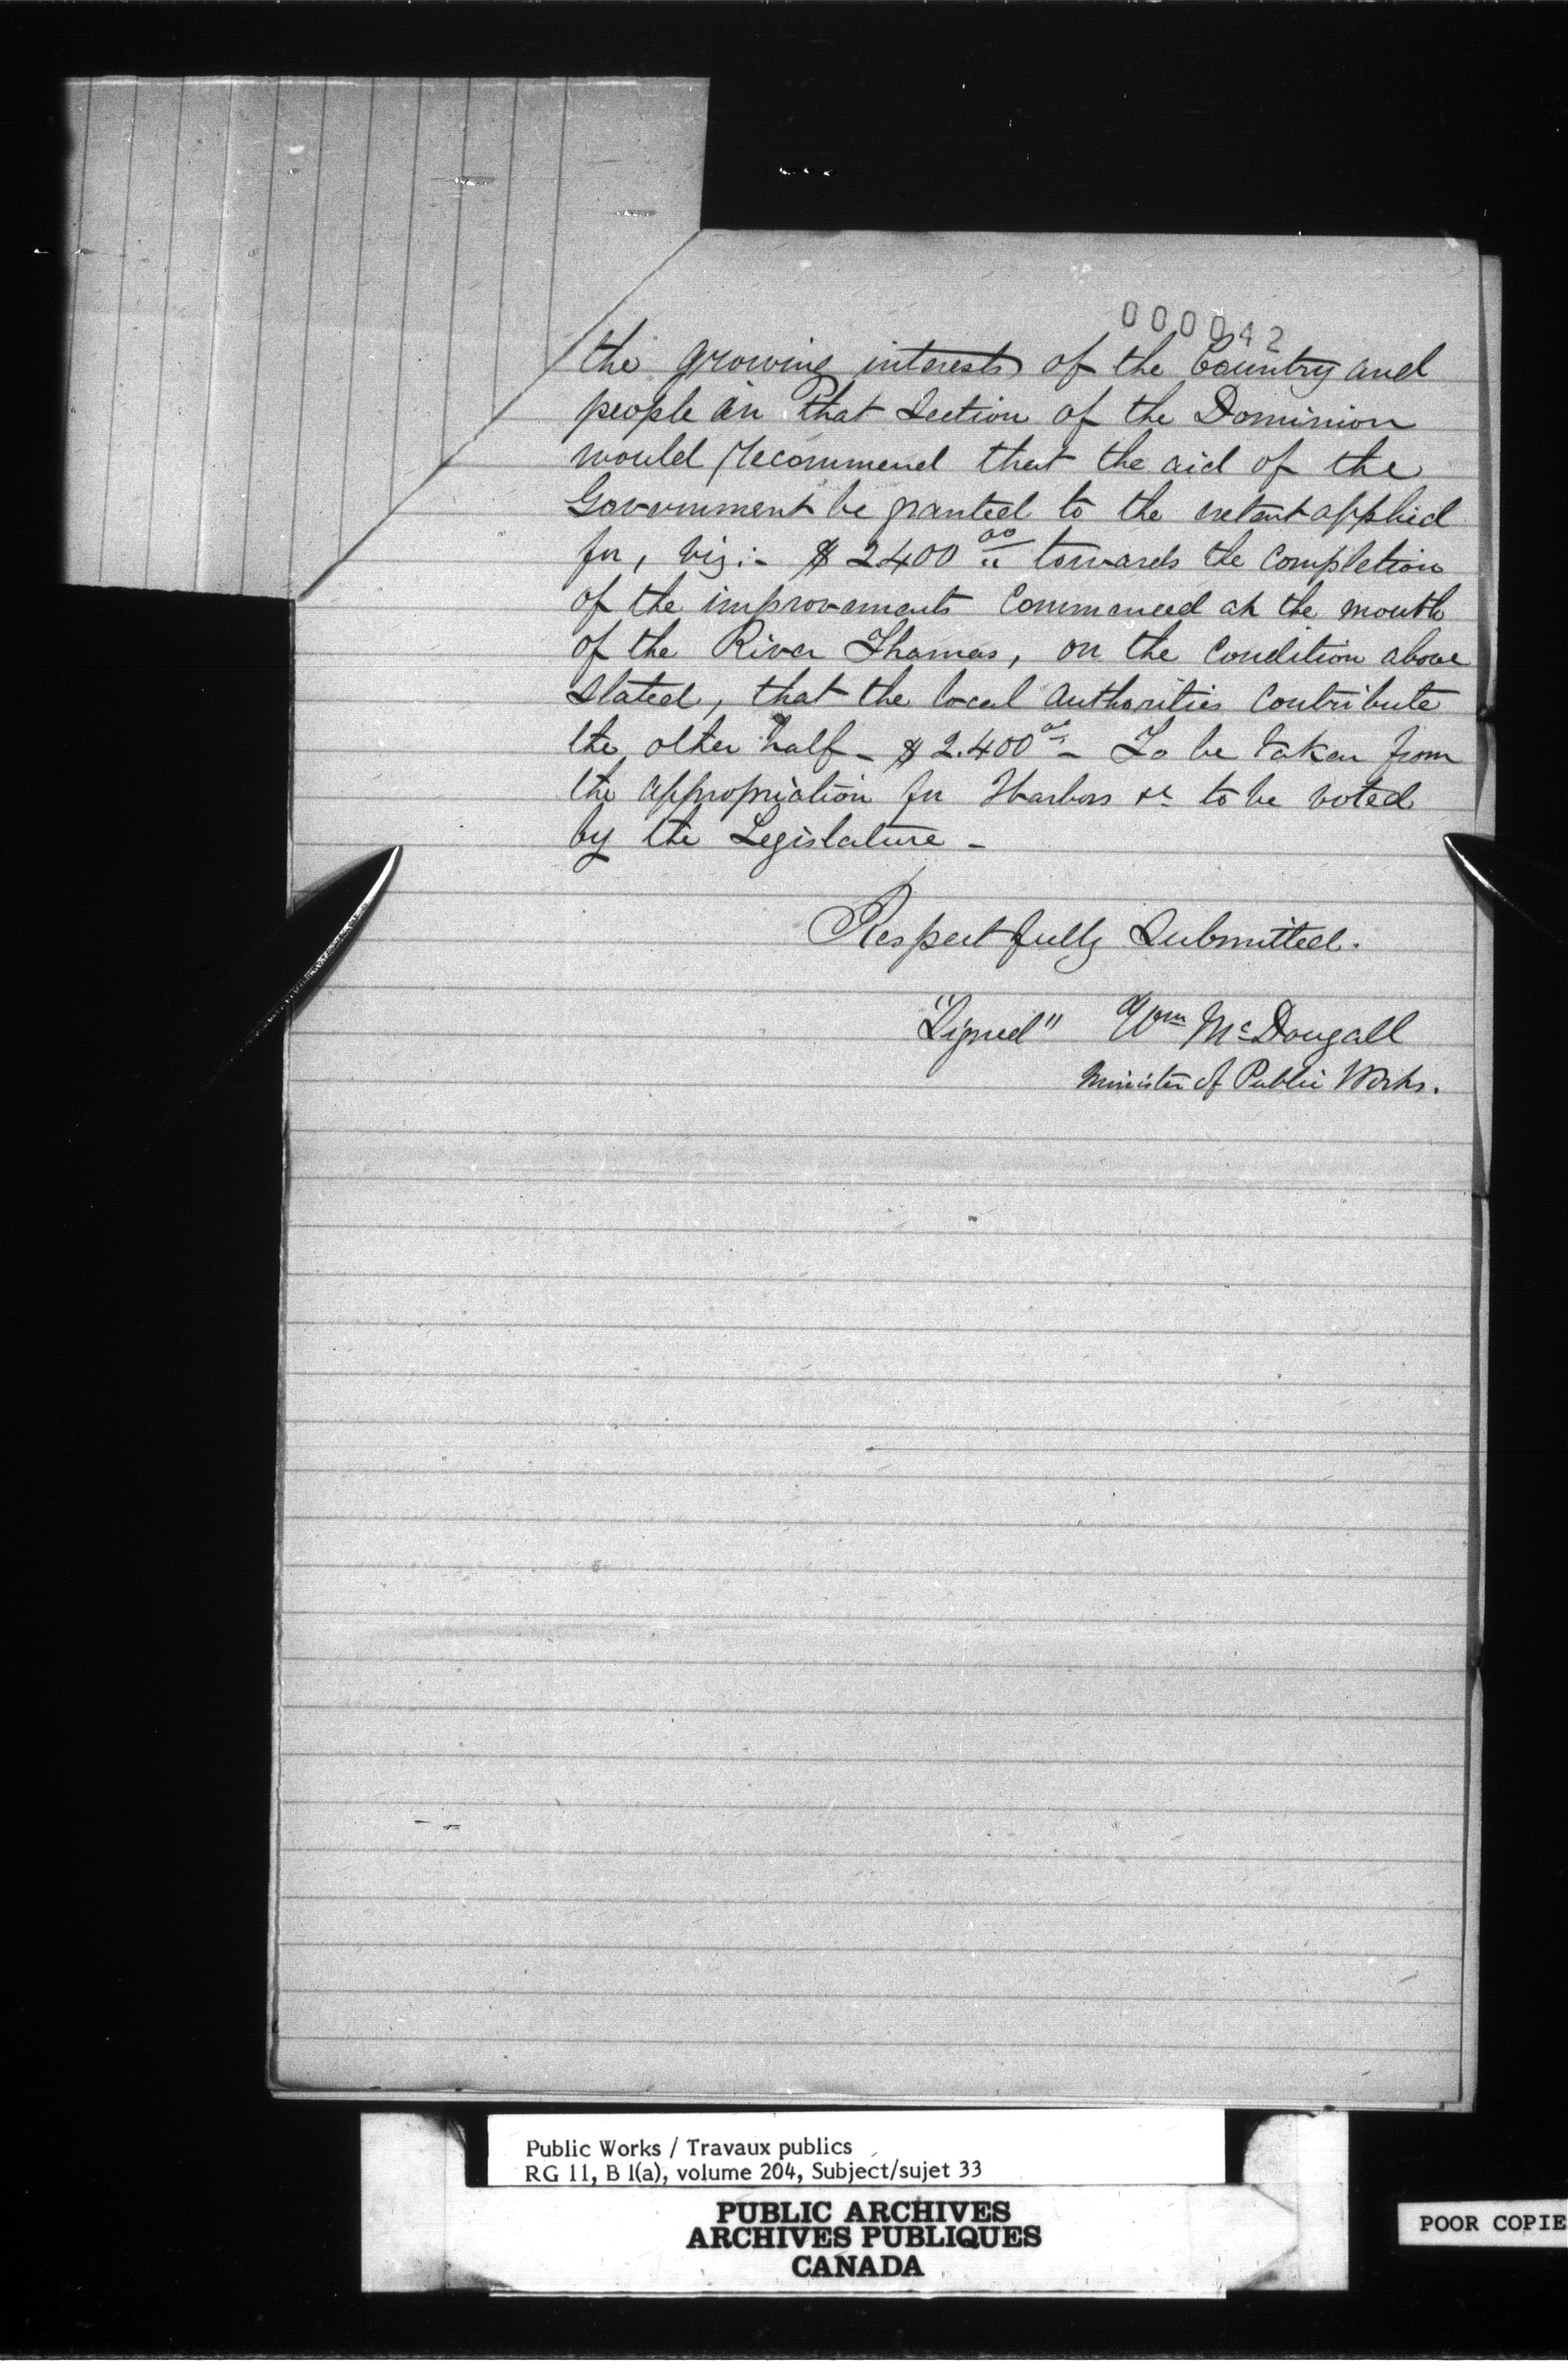 000042
the growing interests of the Country and
people in that Section of the Dominion
would recommend that the aid of the
Government be granted to the extent applied
for, viz:- $2400 00/.. towards the Completion
of the improvements Commenced at the mouth
of the River Thames, on the Condition above
Stated, that the local Authorities Contribute
the other half - $2.400 00/.. - To be taken from
the appropriation for Harbors &c to be voted
by the Legislature -
Respectfully Submitted.
"Signed" Wm McDougall
Minister of Public Works.
Public Works / Travaux publics
RG 11, B 1(a), volume 204, Subject/sujet 33
PUBLIC ARCHIVES
ARCHIVES PUBLIQUES
CANADA
POOR COPIE